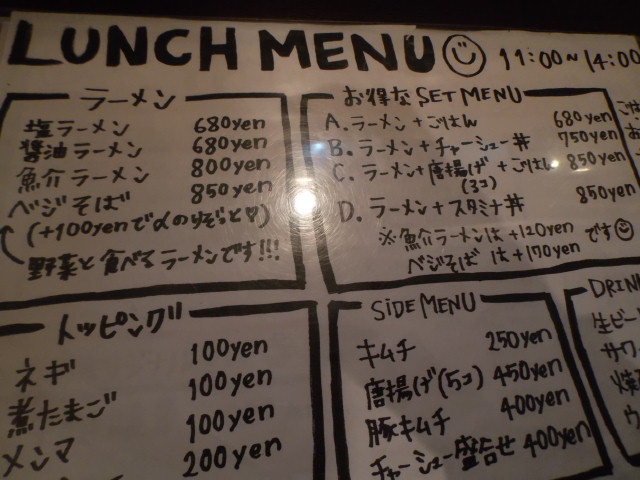 LUNCH MENU 11:00~14:00
ラーメン
塩ラーメン 680yen
醤油ラーメン 680yen
魚介ラーメン 800yen
ベジそば 850yen
(+100yenで〆のりぞっと♡)
野菜と食べるラーメンです!!!
お得なSET MENU
A. ラーメン+ごはん 680yen
B. ラーメン+チャーシュー丼 750yen
C. ラーメン+唐揚げ+ごはん 850yen
(3コ)
D. ラーメン+スタミナ丼 850yen
※魚介ラーメンは+120yen
ベジそば は+170yen です
トッピング
ネギ 100yen
煮たまご 100yen
メンマ 100yen
200yen
SiDE MENU
キムチ 250yen
唐揚げ(5コ) 450yen
豚キムチ 400yen
チャーシュー盛合せ 400yen
DRIN
生ビー
サワ